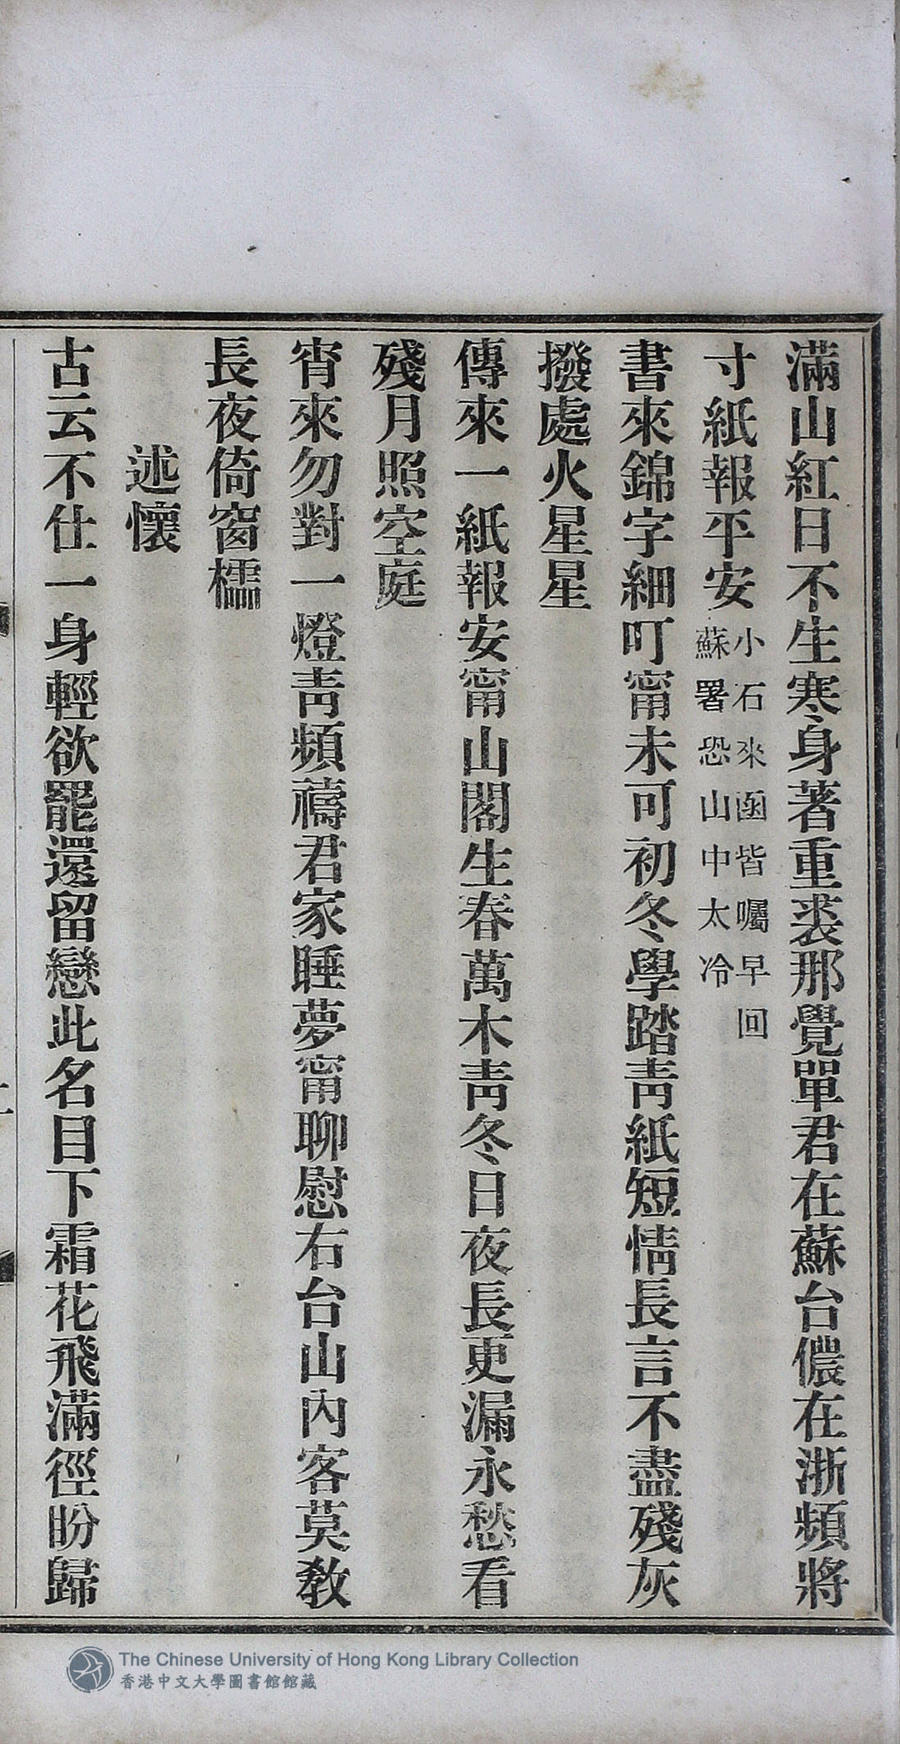 滿山紅日不生寒身著重裘那覺單君在蘇台儂在浙頻將
寸紙報平安小石來函皆囑早回蘇署恐山中太冷
書來錦字細叮甯未可初冬學踏靑紙短情長言不盡殘灰
撥處火星星
傳來一紙報安甯山閣生春萬木靑冬日夜長更漏永愁看
殘月照空庭
宵來勿對一燈靑頻禱君家睡夢甯聊慰右台山內客莫敎
長夜倚窗櫺
述懷
古云不仕一身輕欲罷還留戀此名目下霜花飛滿徑盼歸
The Chinese University of Hong Kong Library Collection
香港中文大學圖書館館藏